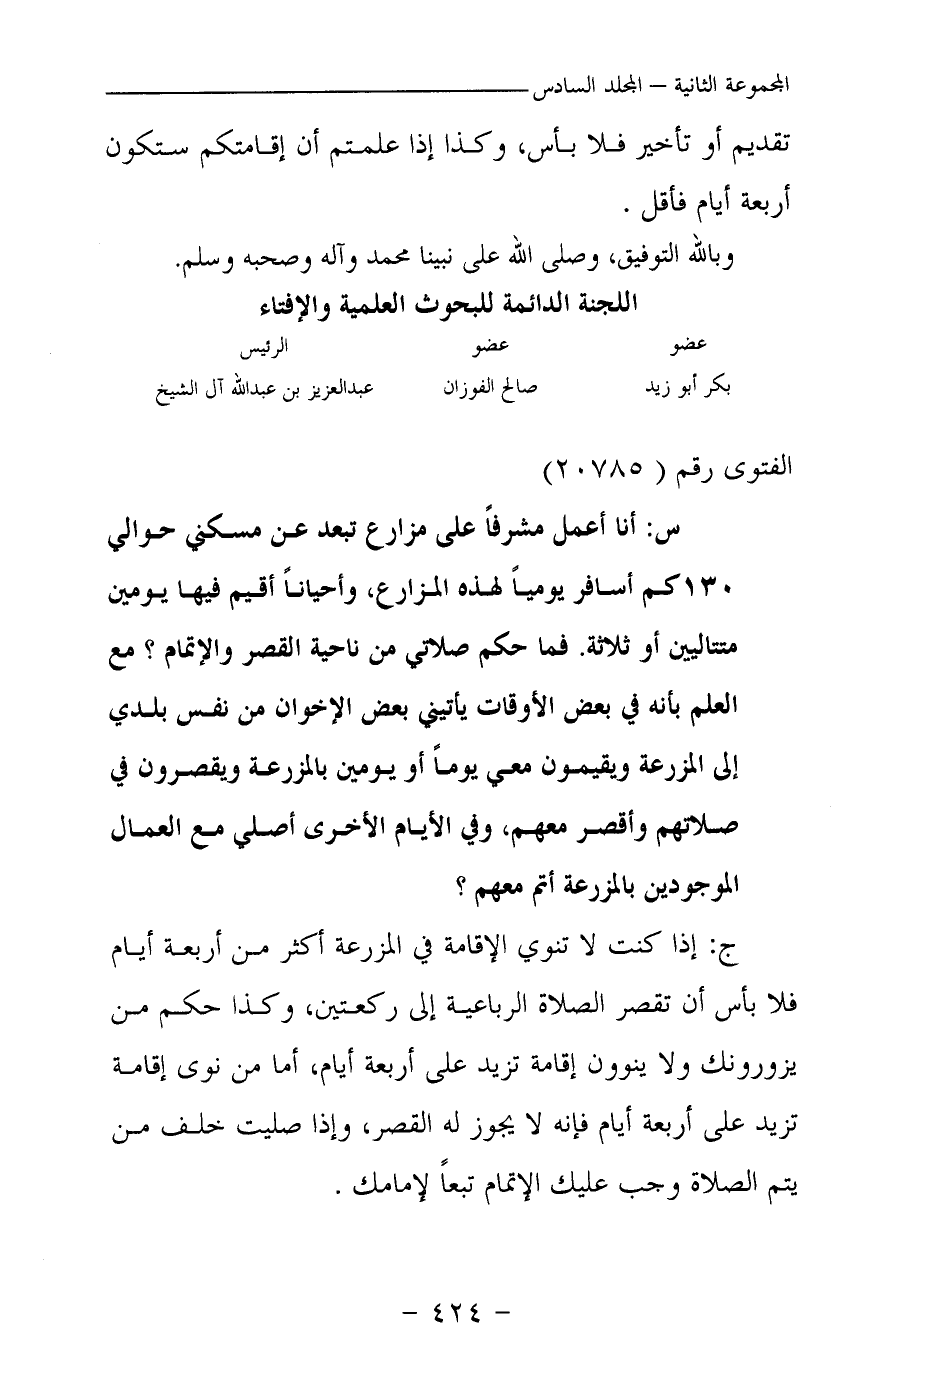 المجموعة الثانية – المجلد السادس
تقديم أو تأخير فلا بأس، وكذا إذا علمتم أن إقامتكم ستكون
أربعة أيام فأقل .
وبالله التوفيق، وصلى الله على نبينا محمد وآله وصحبه وسلم.
اللجنة الدائمة للبحوث العلمية والإفتاء
عضو عضو الرئيس
بكر أبو زيد صالح الفوزان عبدالعزيز بن عبدالله آل الشيخ
الفتوى رقم ( ٢٠٧٨٥)
س: أنا أعمل مشرفاً على مزارع تبعد عن مسكني حوالي
١٣٠كم أسافر يومياً لهذه المزارع، وأحياناً أقيم فيها يومين
متتاليين أو ثلاثة. فما حكم صلاتي من ناحية القصر والإتمام ؟ مع
العلم بأنه في بعض الأوقات يأتيني بعض الإخوان من نفس بلدي
إلى المزرعة ويقيمون معي يوماً أو يومين بالمزرعة ويقصرون في
صلاتهم وأقصر معهم، وفي الأيام الأخرى أصلي مع العمال
الموجودين بالمزرعة أتم معهم ؟
ج: إذا كنت لا تنوي الإقامة في المزرعة أكثر من أربعة أيام
فلا بأس أن تقصر الصلاة الرباعية إلى ركعتين، وكذا حكم من
يزورونك ولا ينوون إقامة تزيد على أربعة أيام، أما من نوى إقامة
تزيد على أربعة أيام فإنه لا يجوز له القصر، وإذا صليت خلف من
يتم الصلاة وجب عليك الإتمام تبعاً لإمامك .
– ٤٢٤ –